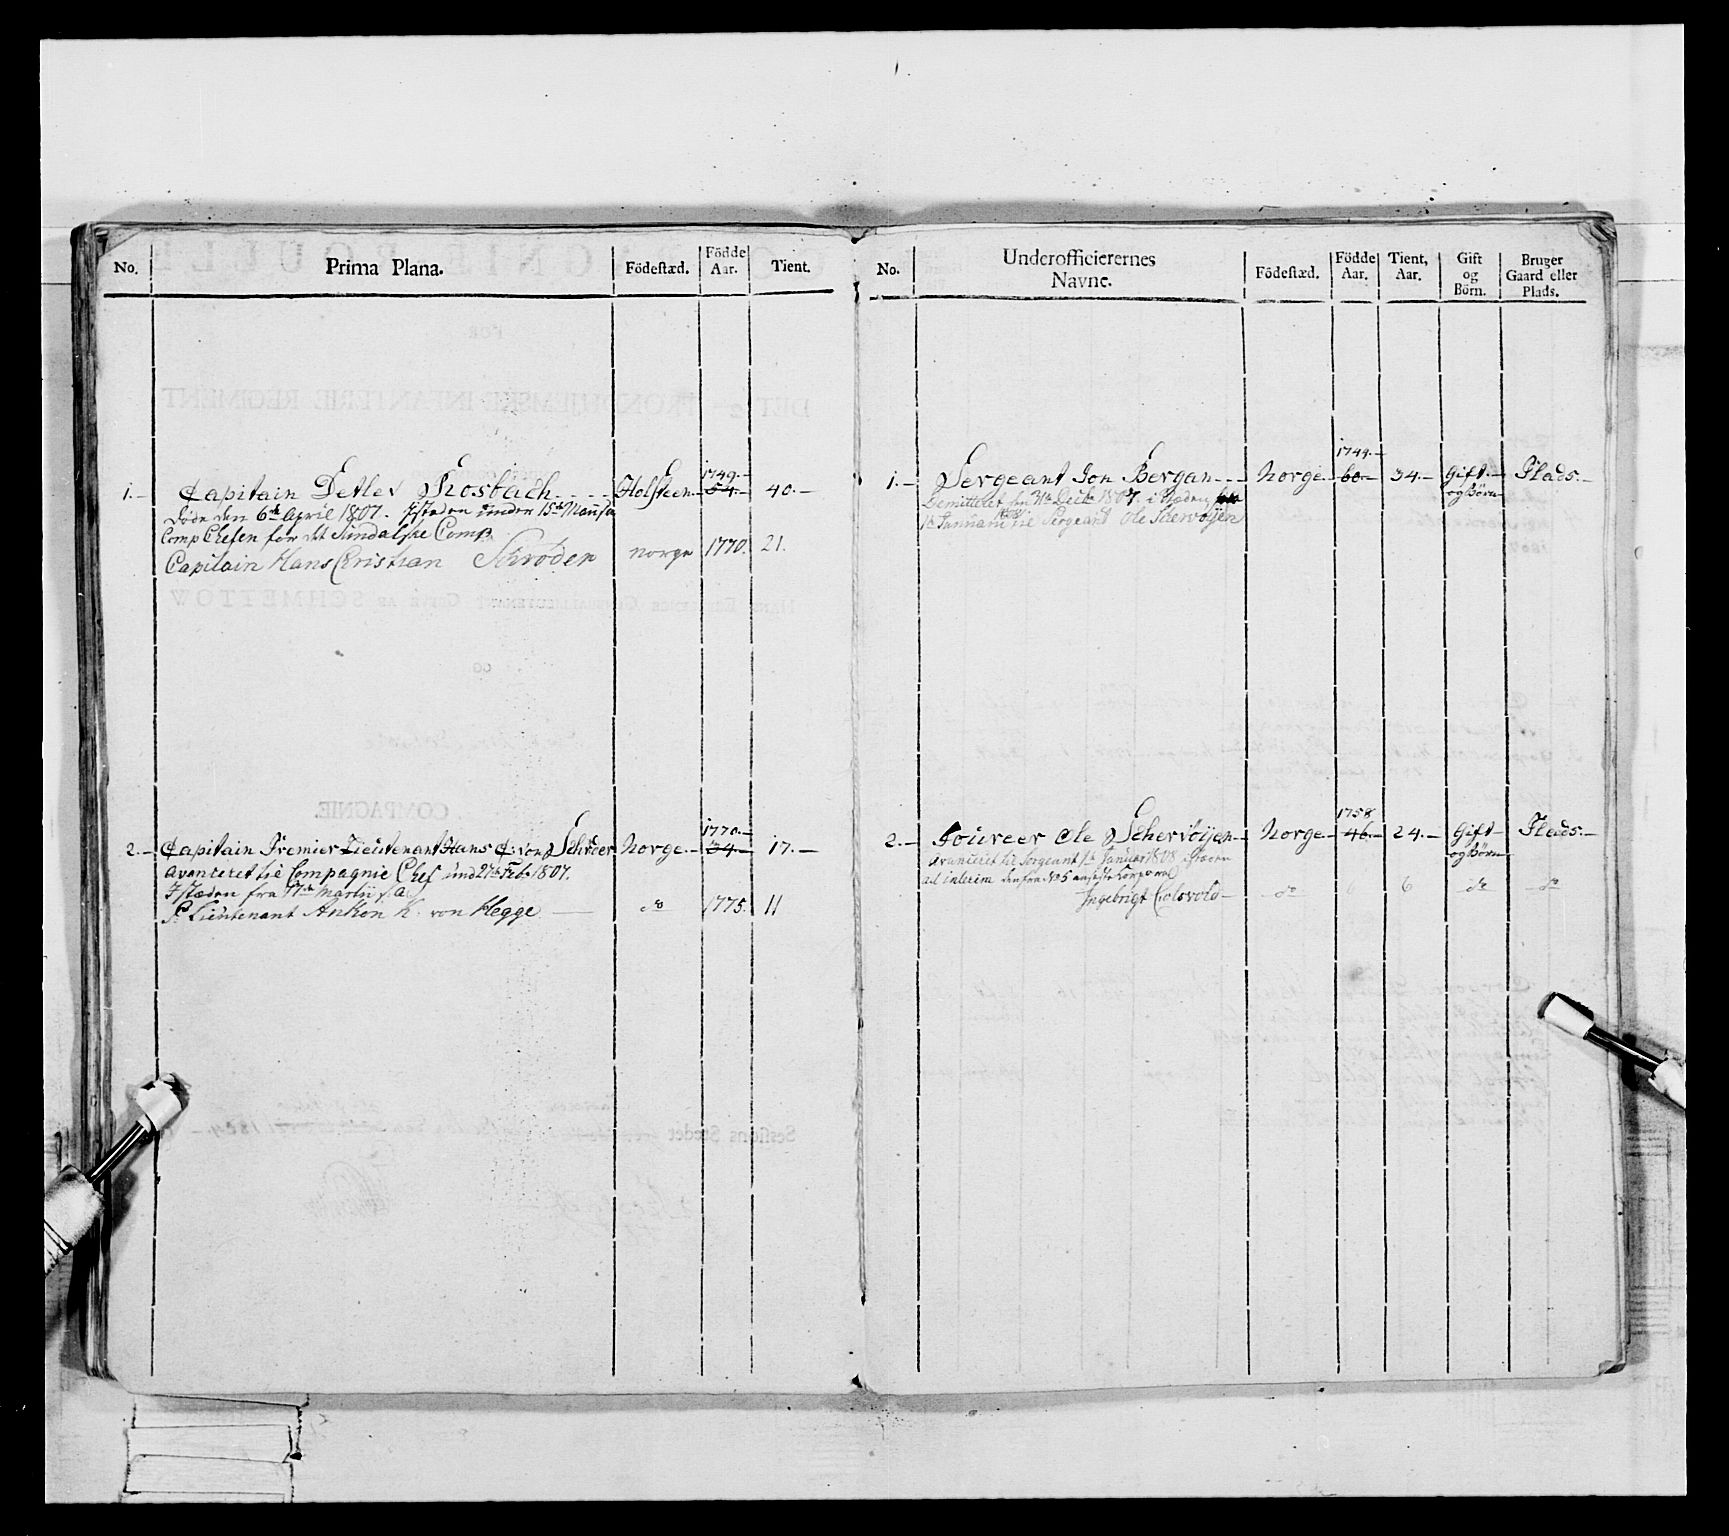 No. Prima Plana. Födestæd. Födde Aar. Tient.
1749.–
1.– Capitain Detlev Rosbach Holsteen 54.– 40.–
døde den 6te April 1807. Istæden under 15de
Comp Chefen for det Sundalske Comp
Capitain Hans Christian Schrøder norge 1770. 21.
1770.–
2.– Capitain Premier Lieutenant Hans C: von Schrøer Norge.– 34.– 17.–
avanceret til Compagnie Chef und 27de Feb. 1807.
Istæden fra 17de Martii s: a:
Pr Lieutenant Anthon K. von Hegge do 1775. 11
No. Underofficierernes Navne. Födestæd. Födde Aar. Tient, Aar. Gift og Börn. Bruger Gaard eller Plads.
1744.–
1.– Sergeant Jon Bergan Norge 60.– 34.– Gift.– Plads.–
og Börn
Demitteret den 31te Decb 1807. i Stæden
1te Januarii til Sergeant Ole Schervøijen
1758
2.– Foureer Ole Schervøijen Norge 46.– 24.– Gift Plads.–
og Börn
avanceret til Sergeant 1te Januar 1808 istæden
ad interim den fra No 5 ansatte Corporal
Ingebrigt Holsvold do 6 do do